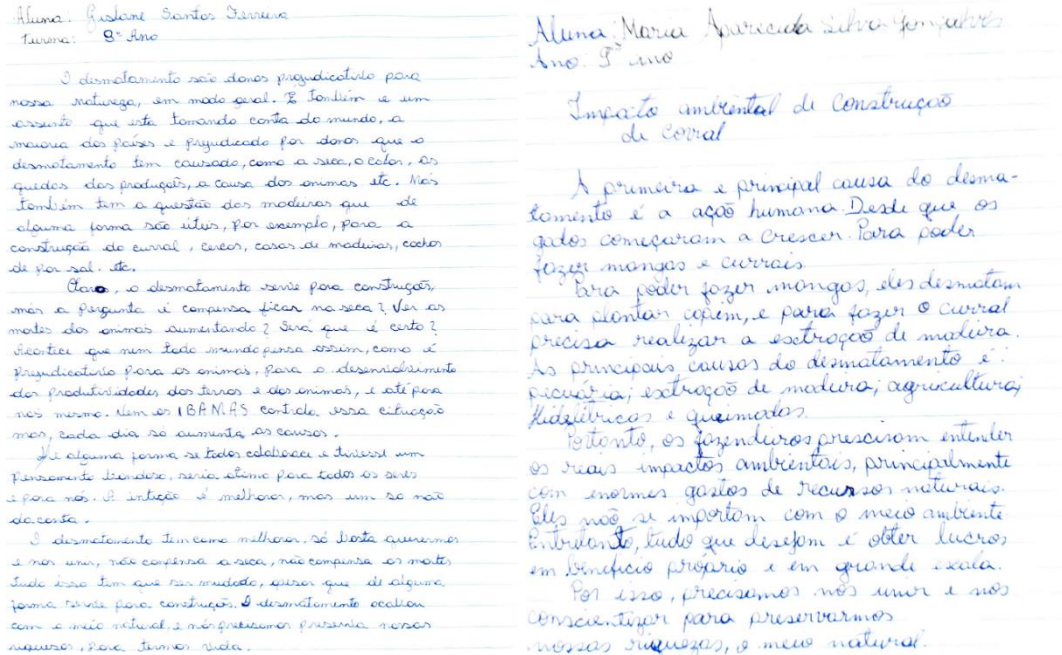 Aluna: Gislane Santos Ferreira
Turma: 8º Ano
O desmatamento são danos prejudicativo para
nossa natureza, em modo geral. E também e um
assunto que esta tomando conta do mundo, a
maioria dos países e prejudicado por danos que o
desmatamento tem causado, como a seca, o calor, as
quedas das produçoẽs, a causa dos animas etc. Mas
também tem a questão das madeiras que de
alguma forma são utéis, por exemplo, para a
construção do curral, cercas, casas de madeiras, cochos
de por sal. etc.
Claro, o desmatamento serve para construções,
mas a pergunta é compensa ficar na seca? Ver as
mortes dos animas aumentando? Será que é certo?
Acontece que nem todo mundo pensa assim, como é
prejudicativo para os animas, para o desenvolvimento
das produtividades das terras e dos animas, e até para
nos mesmo. Nem os IBAMAS controla essa cituação
mas, cada dia so aumenta as causas.
De alguma forma se todos colaboraci e tivessi um
pensamento bondoso, seria otimo para todos os seres
e para nós. A intição é melhorar, mas um so não
da conta.
O desmatamento tem como melhorar, só basta querermos
e nos unir, não compensa a seca, não compensa as mortes
tudo isso tem que ser mudado, apesar que de alguma
forma serve para construção. O desmatamento acabou
com o meio natural, e nós precisamos preserva nossas
riquesas, para termos vida.
Aluna: Maria Aparecida Silva Gonçalves
Ano: 9º ano
Impacto ambiental de Construção
de Corral
A primeira e principal causa do desma-
tamento é a ação humana. Desde que os
gados começaram a crescer. Para poder
fazer mangas e currais.
Para poder fazer mangas, eles desmatam
para plantar capim, e para fazer o curral
precisa realizar a extração de madeira.
As principais causas do desmatamento é:
pecuária; extração de madura; agricultura;
Hidelétricas e queimadas.
Portanto, os fazendeiros presciram entender
os reais impactos ambientais, principalmente
com enormes gastos de recursos naturais.
Eles não se importam com o meio ambiente
Entretanto, tudo que desejam é obter lucros,
em benefício próprio e em grande escala.
Por isso, precisamos nós unir e nós
conscientizar para preservarmos
nossas riquezas, o meio natural.